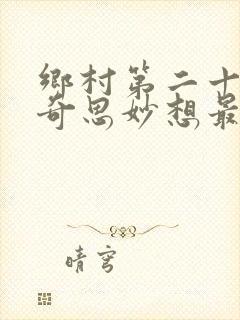 鄉村第二十
奇思妙想最
晴穹